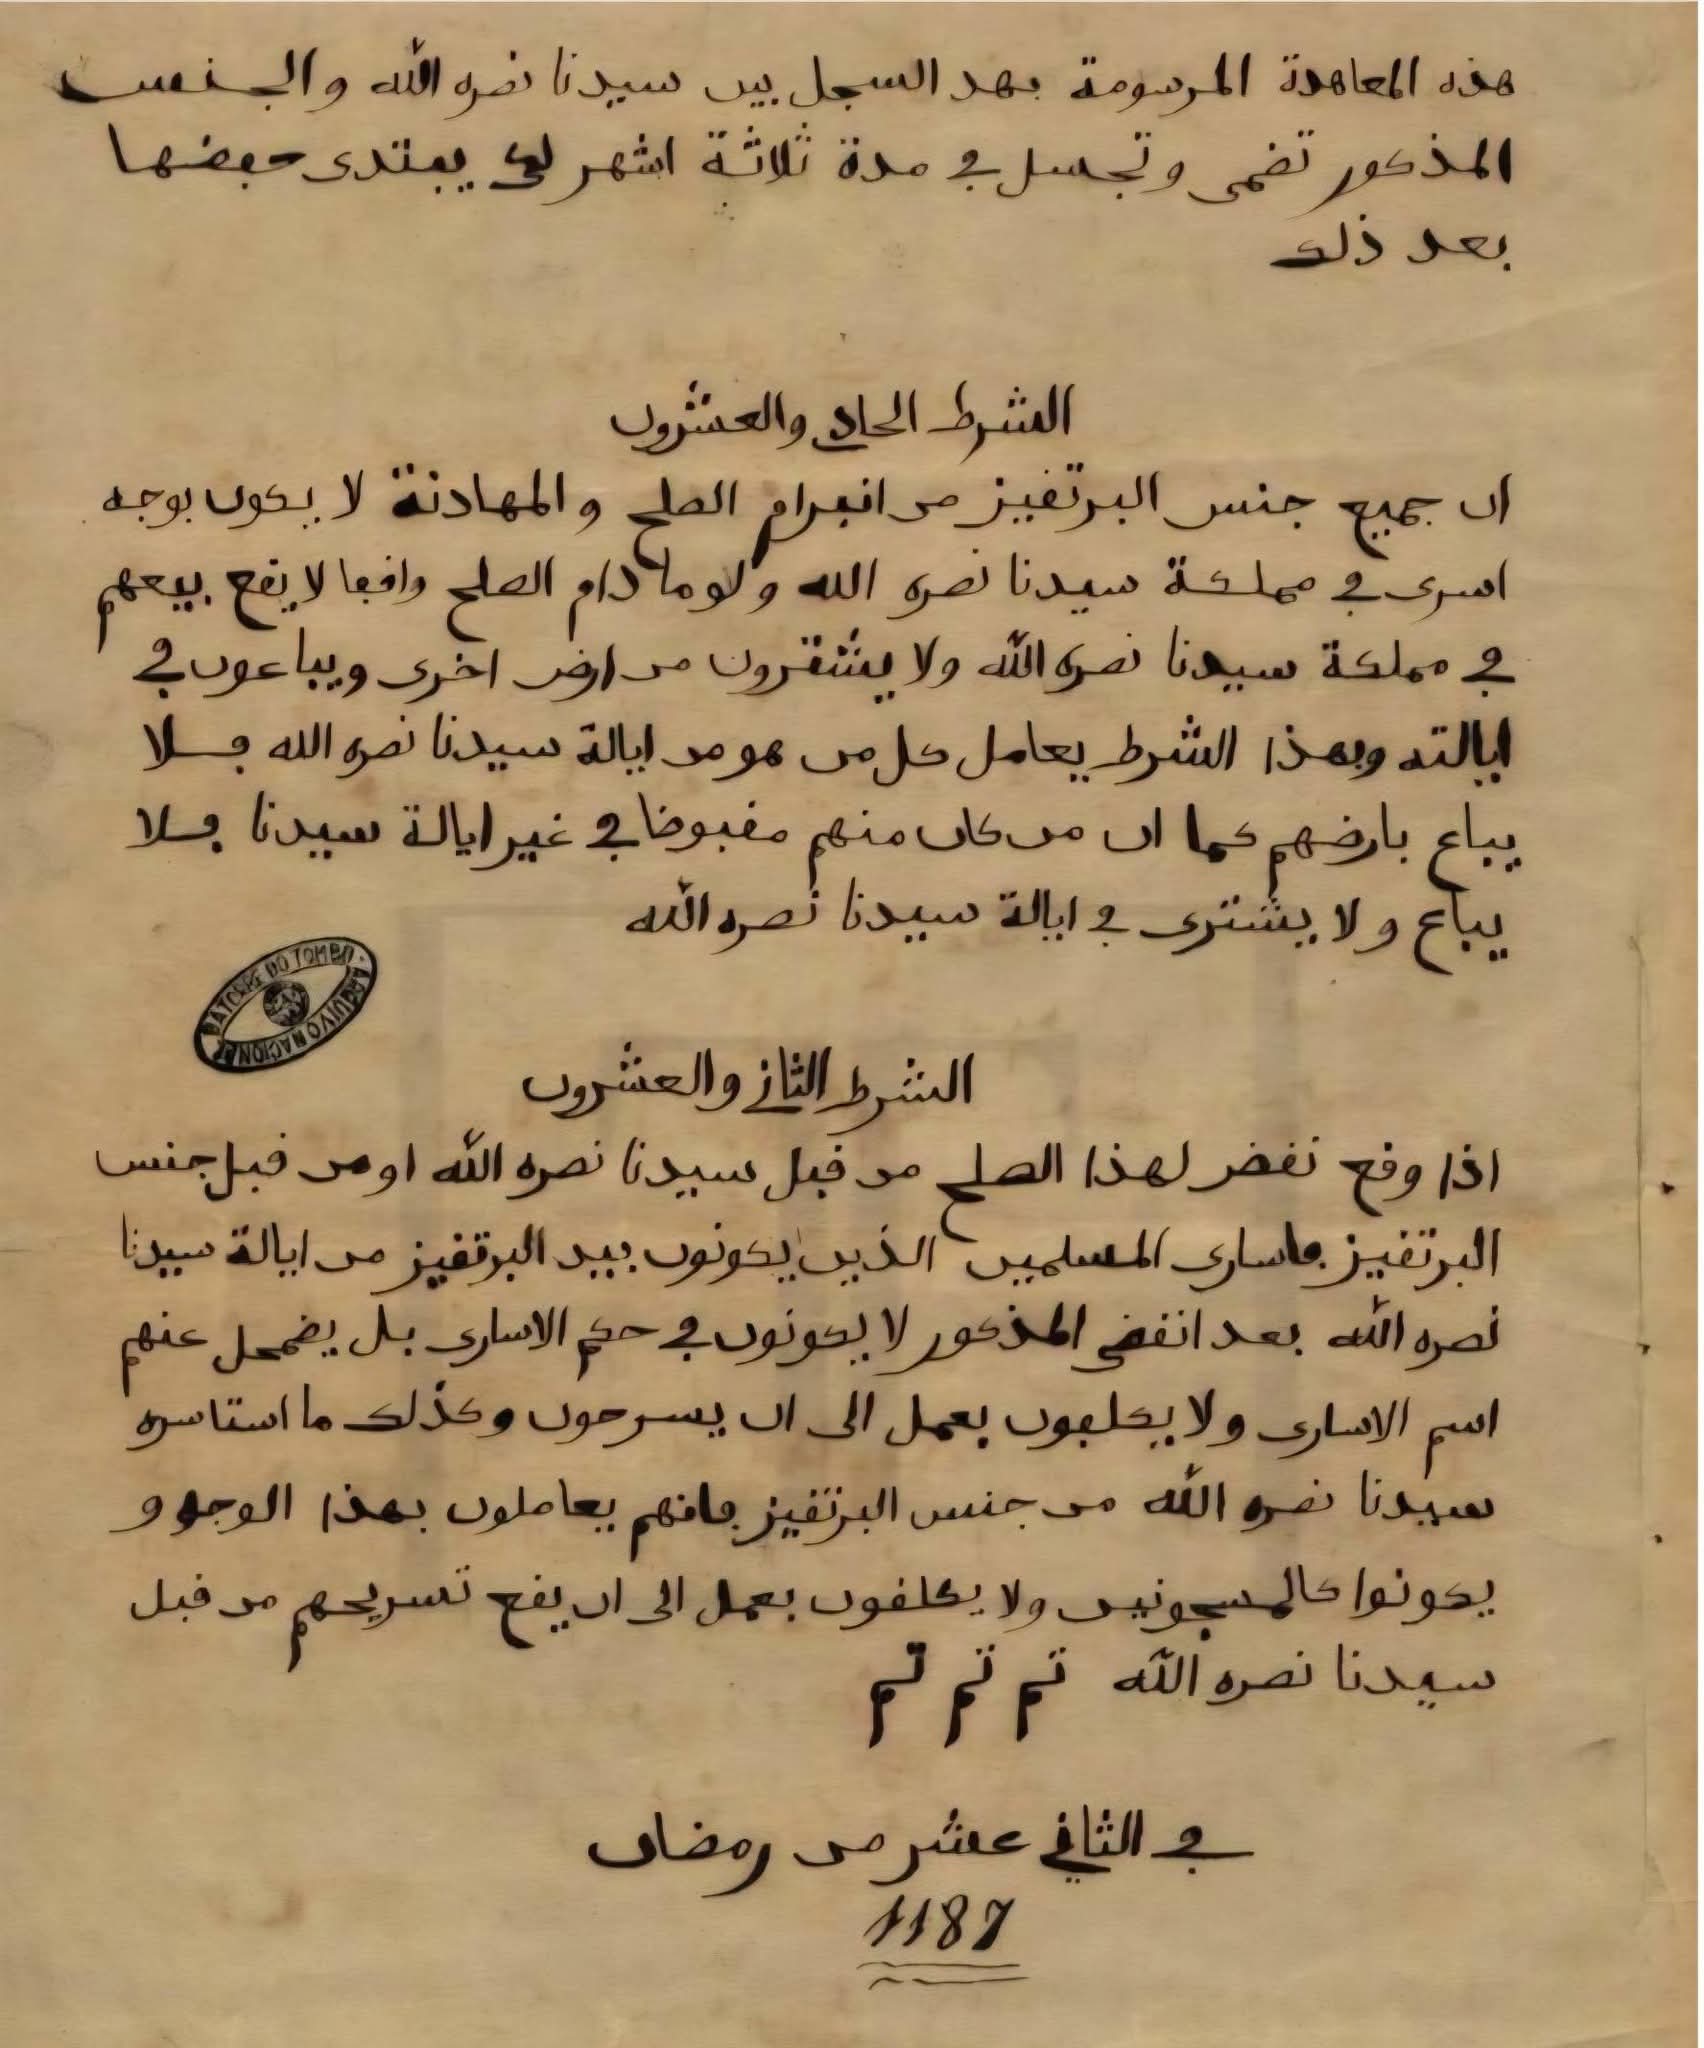 هذه المعاهدة المرسومة بهد السجل بين سيدنا نصره الله والجنس
المذكور تضمى وتجسل في مدة ثلاثة اشهر لكي يبتدى حفضها
بعد ذلك
الشرط الحادي والعشرون
ان جميع جنس البرتقيز من انبرام الصلح والمهادنة لا يكون بوجه
اسرى في مملكة سيدنا نصره الله ولو ما دام الصلح واقعا لا يقع بيعهم
في مملكة سيدنا نصره الله ولا يشترون من ارض اخرى ويباعون في
ايالته وبهذا الشرط يعامل كل من هو من ايالة سيدنا نصره الله فلا
يباع بارضهم كما ان من كان منهم مقبوضا في غير ايالة سيدنا فلا
يباع ولا يشترى في ايالة سيدنا نصره الله
BATORRE DO TOMBO · ARQUIVO NACIONAL
الشرط الثاني والعشرون
اذا وقع نقض لهذا الصلح من قبل سيدنا نصره الله او من قبل جنس
البرتقيز فاسارى المسلمين الذين يكونون بيد البرتقيز من ايالة سيدنا
نصره الله بعد انقضى المذكور لا يكونون في حكم الاسارى بل يضمحل عنهم
اسم الاسارى ولا يكلفون بعمل الى ان يسرحون وكذلك ما استاسره
سيدنا نصره الله من جنس البرتقيز فانهم يعاملون بهذا الوجه و
يكونوا كالمسجونين ولا يكلفون بعمل الى ان يقع تسريحهم من قبل
سيدنا نصره الله تم تم تم
في الثاني عشر من رمضان
1187